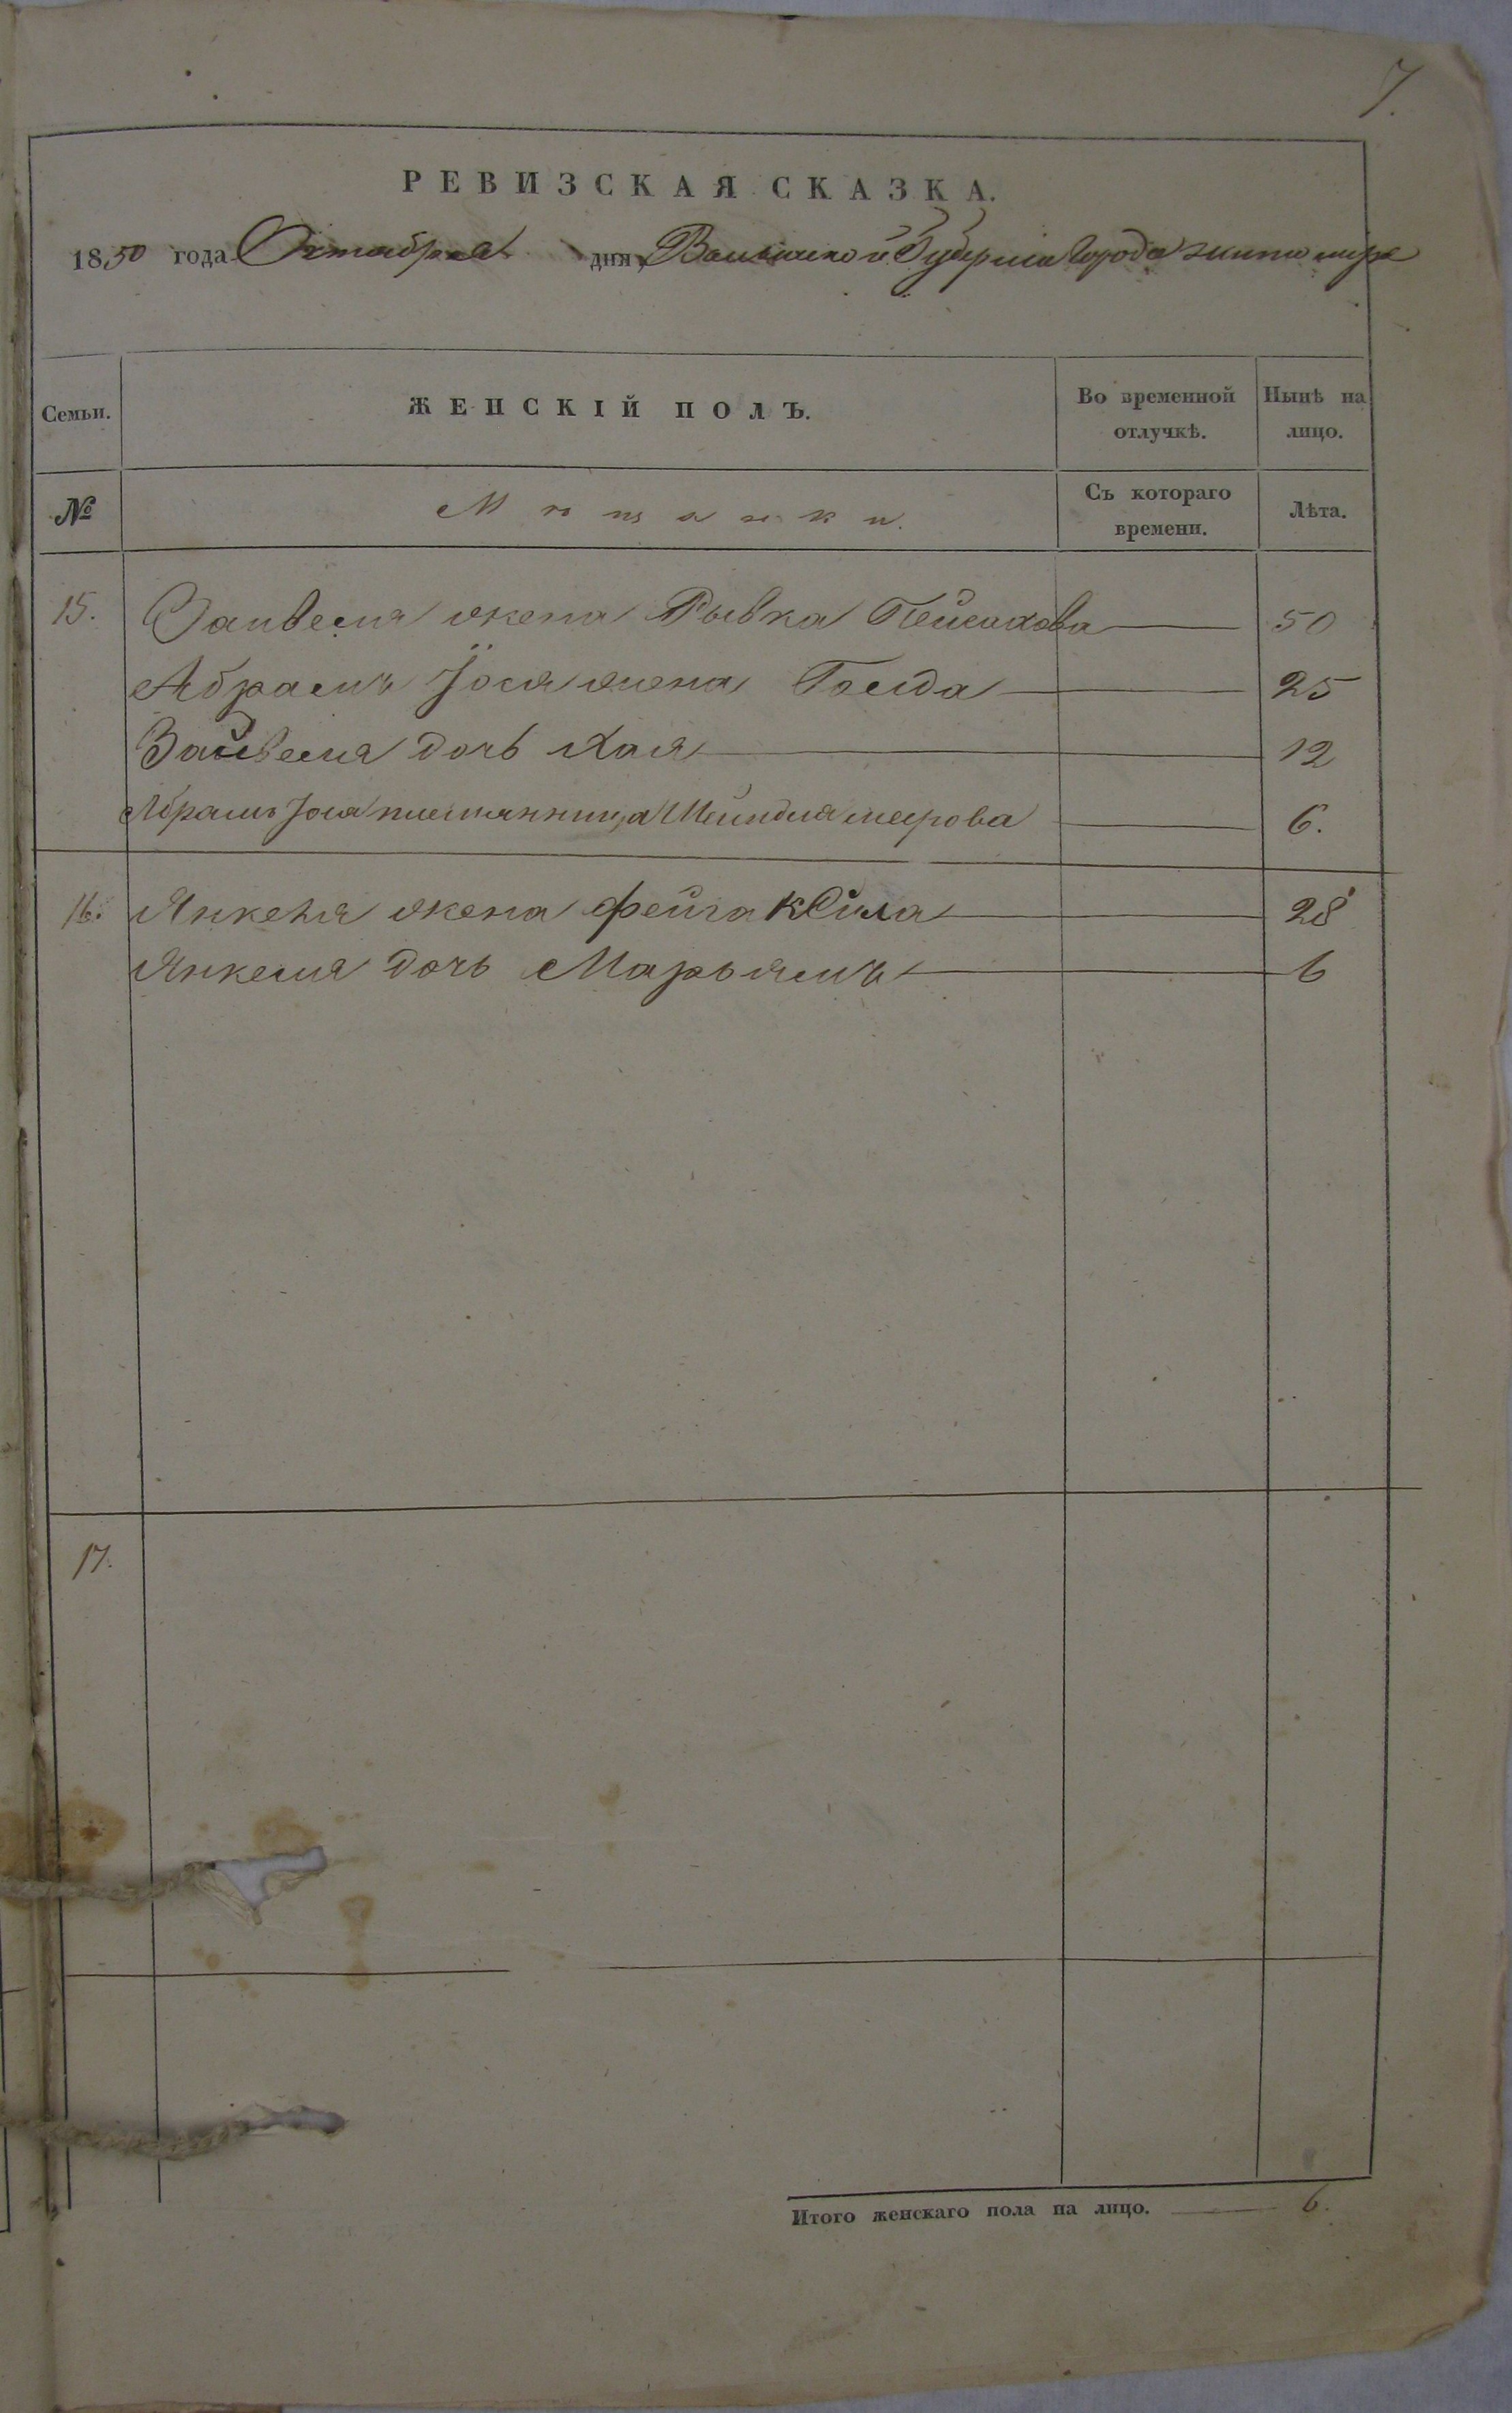 7.
РЕВИЗСКАЯ СКАЗКА.
1850 года Октября дня Волынской Губерніи Города житомира
Семьи. ЖЕНСКІЙ ПОЛЪ. Во временной отлучкѣ. Нынѣ на лицо.
№ Мѣщанки. Съ котораго времени. Лѣта.
15. Занвеля жена Рывка Пейсахова 50
Абрамъ Іося жена Голда 25
Занвеля дочь Хая 12
Абрамъ Іося племянница Шейндля меерова 6.
16. Янкеля жена фейга 28
Янкеля дочь Марьямъ 6
17.
Итого женскаго пола на лицо. 6.